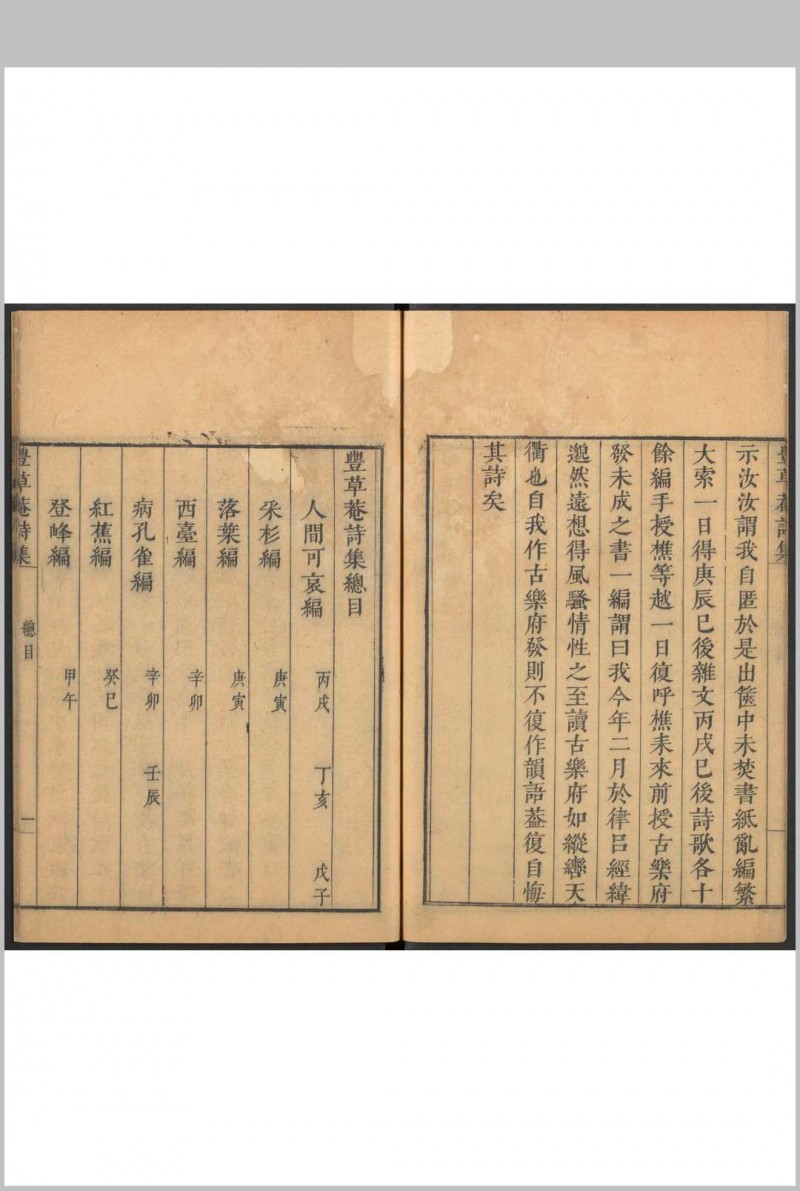 示汝汝謂我自匿於是出篋中未焚書紙亂編繁
大索一日得庚辰巳後雜文丙戌巳後詩歌各十
餘編手授樵等越一日復呼樵耒來前授古樂府
發未成之書一編謂曰我今年二月於律呂經緯
邈然遠想得風騷情性之至讀古樂府如縱轡天
衢也自我作古樂府發則不復作韻語葢復自悔
其詩矣
豐草菴詩集總目
人間可哀編 丙戌 丁亥 戊子
采杉編 庚寅
落葉編 庚寅
西臺編 辛卯
病孔雀編 辛卯 壬辰
紅蕉編 癸巳
登峰編 甲午
豐草菴詩集 總目 一